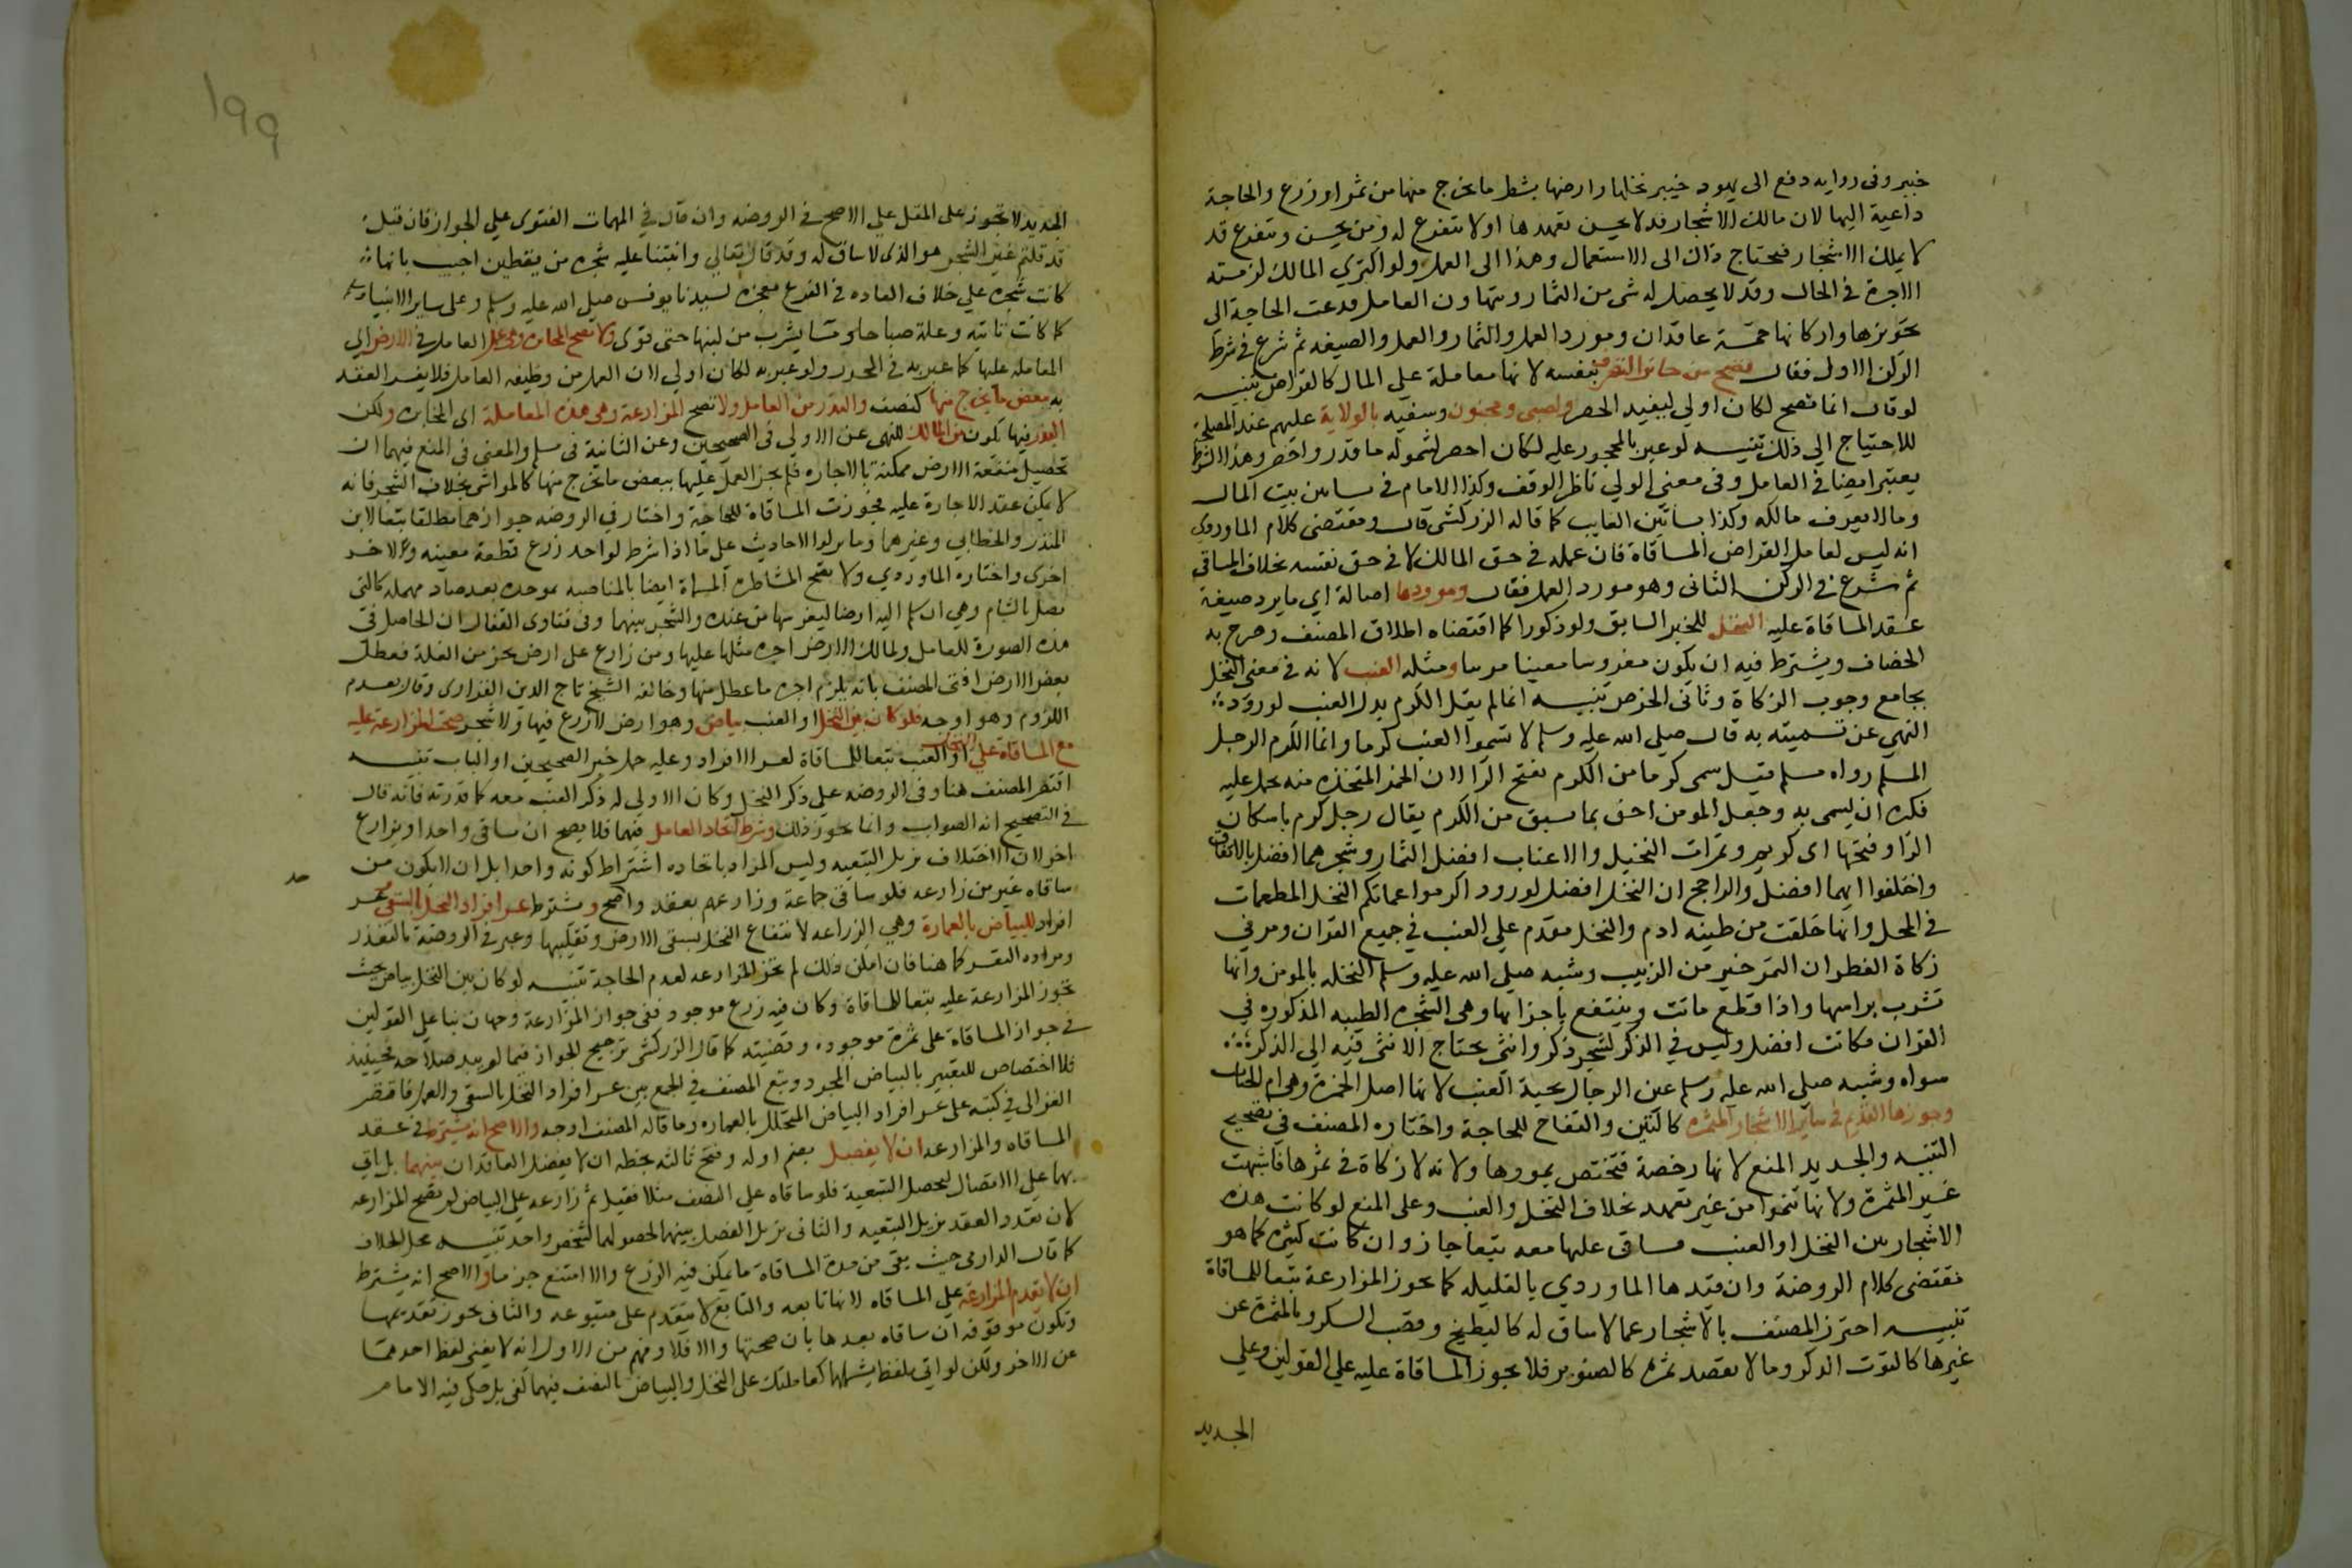 خيبر وفي رواية دفع الى يهود خيبر نخلها وارضها بشطر ما يخرج منها من ثمر او زرع والحاجة
داعية اليها لان مالك الاشجار قد لا يحسن تعهدها او لا يتفرغ له ومن يحسن ويتفرغ قد
لا يملك الاشجار فيحتاج ذاك الى الاستعمال وهذا الى العمل ولو اكترى المالك لزمته
الاجرة في الحال وقد لا يحصل له شي من الثمار ويتهاون العامل فدعت الحاجة الى
تجويزها واركانها خمسة عاقدان ومورد العمل والثمار والعمل والصيغة ثم شرع في شرط
الركن الاول فقال تصح من جائز التصرف لنفسه لانها معاملة على المال كالقراض تنبيه
لو قال انما تصح لكان اولى ليفيد الحصر ولصبي ومجنون وسفيه بالولاية عليهم عند المصلحة
للاحتياج الى ذلك تنبيه لو عبر بالمحجور عليه لكان اخصر لشموله ما قدر واخصر وهذا الشرط
يعتبر ايضا في العامل وفي معنى الولي ناظر الوقف وكذا الامام في بساتين بيت المال
وما لا يعرف مالكه وكذا بساتين الغايب كما قاله الزركشي قال ومقتضى كلام الماوردي
انه ليس لعامل القراض المساقاة فان عمله في حق المالك لا في حق نفسه بخلاف المساقي
ثم شرع في الركن الثاني وهو مورد العمل فقال وموردها اصالة اي ما يرد صيغة
عقد المساقاة عليه النخل للخبر السابق ولو ذكورا كما اقتضاه اطلاق المصنف وصرح به
الخضاف ويشترط فيه ان يكون مغروسا معينا مرئيا ومثله العنب لانه في معنى النخل
بجامع وجوب الزكاة وتاتي الخرص تنبيه انما لم يقل الكرم بدل العنب لورود
النهي عن تسميته به قال صلى الله عليه وسلم لا تسموا العنب كرما وانما الكرم الرجل
المسلم رواه مسلم قيل سمي كرما من الكرم بفتح الرا لان الخمر المتخذة منه تحمل عليه
فكره ان يسمى به وجعل المومن احق بما سبق من الكرم يقال رجل كرم باسكان
الرا وفتحها اي كريم وثمرات النخيل والاعناب افضل الثمار وشجرهما افضل بالاتفاق
واختلفوا ايهما افضل والراجح ان النخل افضل لورود اكرموا عماتكم النخل المطعمات
في المحل وانها خلقت من طينة ادم والنخل مقدم على العنب في جميع القران ومر في
زكاة الفطر ان التمر خير من الزبيب وشبه صلى الله عليه وسلم النخلة بالمومن وانها
تشرب براسها واذا قطع ماتت وينتفع باجزائها وهي الشجرة الطيبة المذكورة في
القران فكانت افضل وليس في الذكر لشجر ذكر وانثى تحتاج الانثى فيه الى الذكر
سواه وشبه صلى الله عليه وسلم عين الدجال بحبة العنب لانها اصل الخمرة وهي ام الخبائث
وجوزها القديم في سائر الاشجار المثمرة كالتين والتفاح للحاجة واختاره المصنف في تصحيح
التنبيه والجديد المنع لانها رخصة فتختص بموردها ولانه لا زكاة في ثمرها فاشبهت
غير المثمرة ولانها تنموا من غير تعهد بخلاف النخل والعنب وعلى المنع لو كانت هذه
الاشجار بين النخل او العنب فساقى عليها معه تبعا جاز وان كانت كثيرة كما هو
مقتضى كلام الروضة وان قيدها الماوردي بالقليلة كما تجوز المزارعة تبعا للمساقاة
تنبيه احترز المصنف بالاشجار عما لا ساق له كالبطيخ وقصب السكر وبالمثمرة عن
غيرها كالتوت الذكر وما لا يقصد ثمره كالصنوبر فلا تجوز المساقاة عليه على القولين وعلى
الجديد
١٩٩
الجديد لا تجوز على المقل على الاصح في الروضة وان قال في المهمات الفتوى على الجواز فان قيل
قد قلتم غير الشجر هو الذي لا ساق له وقد قال تعالى وانبتنا عليه شجرة من يقطين اجيب بانها
كانت شجرة على خلاف العادة في القرع معجزة لسيدنا يونس صلى الله عليه وسلم وعلى ساير الانبيا
كما كانت تاتيه وعلة صباحا ومسا يشرب من لبنها حتى قوى ولا تصح المخابرة وهي عمل العامل في الارض اي
المعاملة عليها كما عبر به في المحرر ولو عبر به لكان اولى لان العمل من وظيفة العامل فلا يفسد العقد
به ببعض ما يخرج منها كنصف والبذر من العامل ولا تصح المزارعة وهي هذه المعاملة اي المخابرة ولكن
البذر فيها يكون من المالك للنهي عن الاولى في الصحيحين وعن الثانية في مسلم والمعنى في المنع فيهما ان
تحصيل منفعة الارض ممكنة بالاجارة فلم يجز العمل عليها ببعض ما يخرج منها كالمواشي بخلاف الشجر فانه
لا يمكن عقد الاجارة عليه فجوزت المساقاة للحاجة واختار في الروضة جوازهما مطلقا تبعا لابن
المنذر والخطابي وغيرهما وتاولوا الاحاديث على ما اذا شرط لواحد زرع قطعة معينة وللاخر
اخرى واختاره الماوردي ولا تصح المشاطرة المسماة ايضا بالمناصبة بموحدة بعد صاد مهملة كالتي
تفعل بالشام وهي ان يسلم اليه ارضا ليغرسها من عنده والشجر بينهما وفي فتاوى القفال ان الحاصل في
هذه الصورة للعامل ولمالك الارض اجرة مثلها عليها ومن زارع على ارض بجزء من الغلة فعطل
بعض الارض افتى المصنف بانه يلزم اجرة ما عطل منها وخالفه الشيخ تاج الدين الفزاري وقال بعدم
اللزوم وهو اوجه فلو كان بين النخل او العنب بياض وهو ارض لا زرع فيها ولا شجر صحت المزارعة عليه
مع المساقاة على النخل او العنب تبعا للمساقاة لعسر الافراد وعليه حمل خبر الصحيحين اول الباب تنبيه
اقتصر المصنف هنا وفي الروضة على ذكر النخل وكان الاولى له ذكر العنب معه كما قدرته فانه قال
في التصحيح انه الصواب وانما يجوز ذلك بشرط اتحاد العامل فيهما فلا يصح ان يساقي واحدا ويزارع
اخر لان الاختلاف يزيل التبعية وليس المراد باتحاده اشتراط كونه واحدا بل ان لا يكون من
ساقاه غير من زارعه فلو ساقى جماعة وزارعهم بعقد واحد صح ويشترط عسر افراد النخل بالسقي وعسر
افراد البياض بالعمارة وهي الزراعة لانتفاع النخل بسقي الارض وتقليبها وعبر في الروضة بالتعذر
ومراده التعسر كما هنا فان امكن ذلك لم تجز المزارعة لعدم الحاجة تنبيه لو كان بين النخل بياض بحيث
تجوز المزارعة عليه تبعا للمساقاة وكان فيه زرع موجود ففي جواز المزارعة وجهان بنا على القولين
في جواز المساقاة على ثمرة موجودة وقضيته كما قال الزركشي ترجيح الجواز فيما لم يبد صلاحه فحينئذ
فلا اختصاص للتعبير بالبياض المجرد وتبع المصنف في الجمع بين عسر افراد النخل بالسقي والعمل فاقتصر
الغزالي في كتبه على عسر افراد البياض المتخلل بالعمارة وما قاله المصنف اوجه والاصح انه يشترط في عقد
المساقاة والمزارعة ان لا يفصل بضم اوله وفتح ثالثه بخطه ان لا يفصل العاقدان بينهما بل ياتي
بها على الاتصال لتحصل التبعية فلو ساقاه على النصف مثلا فقبل ثم زارعه على البياض لم تصح المزارعة
لان تعدد العقد يزيل التبعية والثاني يزيل الفصل بينهما لحصولهما لشخص واحد تنبيه محل الخلاف
كما قال الدارمي حيث بقي من مدة المساقاة ما يمكن فيه الزرع والا امتنع جزما والاصح انه يشترط
ان لا تقدم المزارعة على المساقاة لانها تابعة والتابع لا يتقدم على متبوعه والثاني يجوز تقديمها
وتكون موقوفة ان ساقاه بعدها بان صحتها والا فلا وفهم من الاول انه لا يغني لفظ احدهما
عن الاخر ولكن لو اتى بلفظ يشملهما كعاملتك على النخل والبياض بالنصف فيهما كفى بل حكى فيه الامام